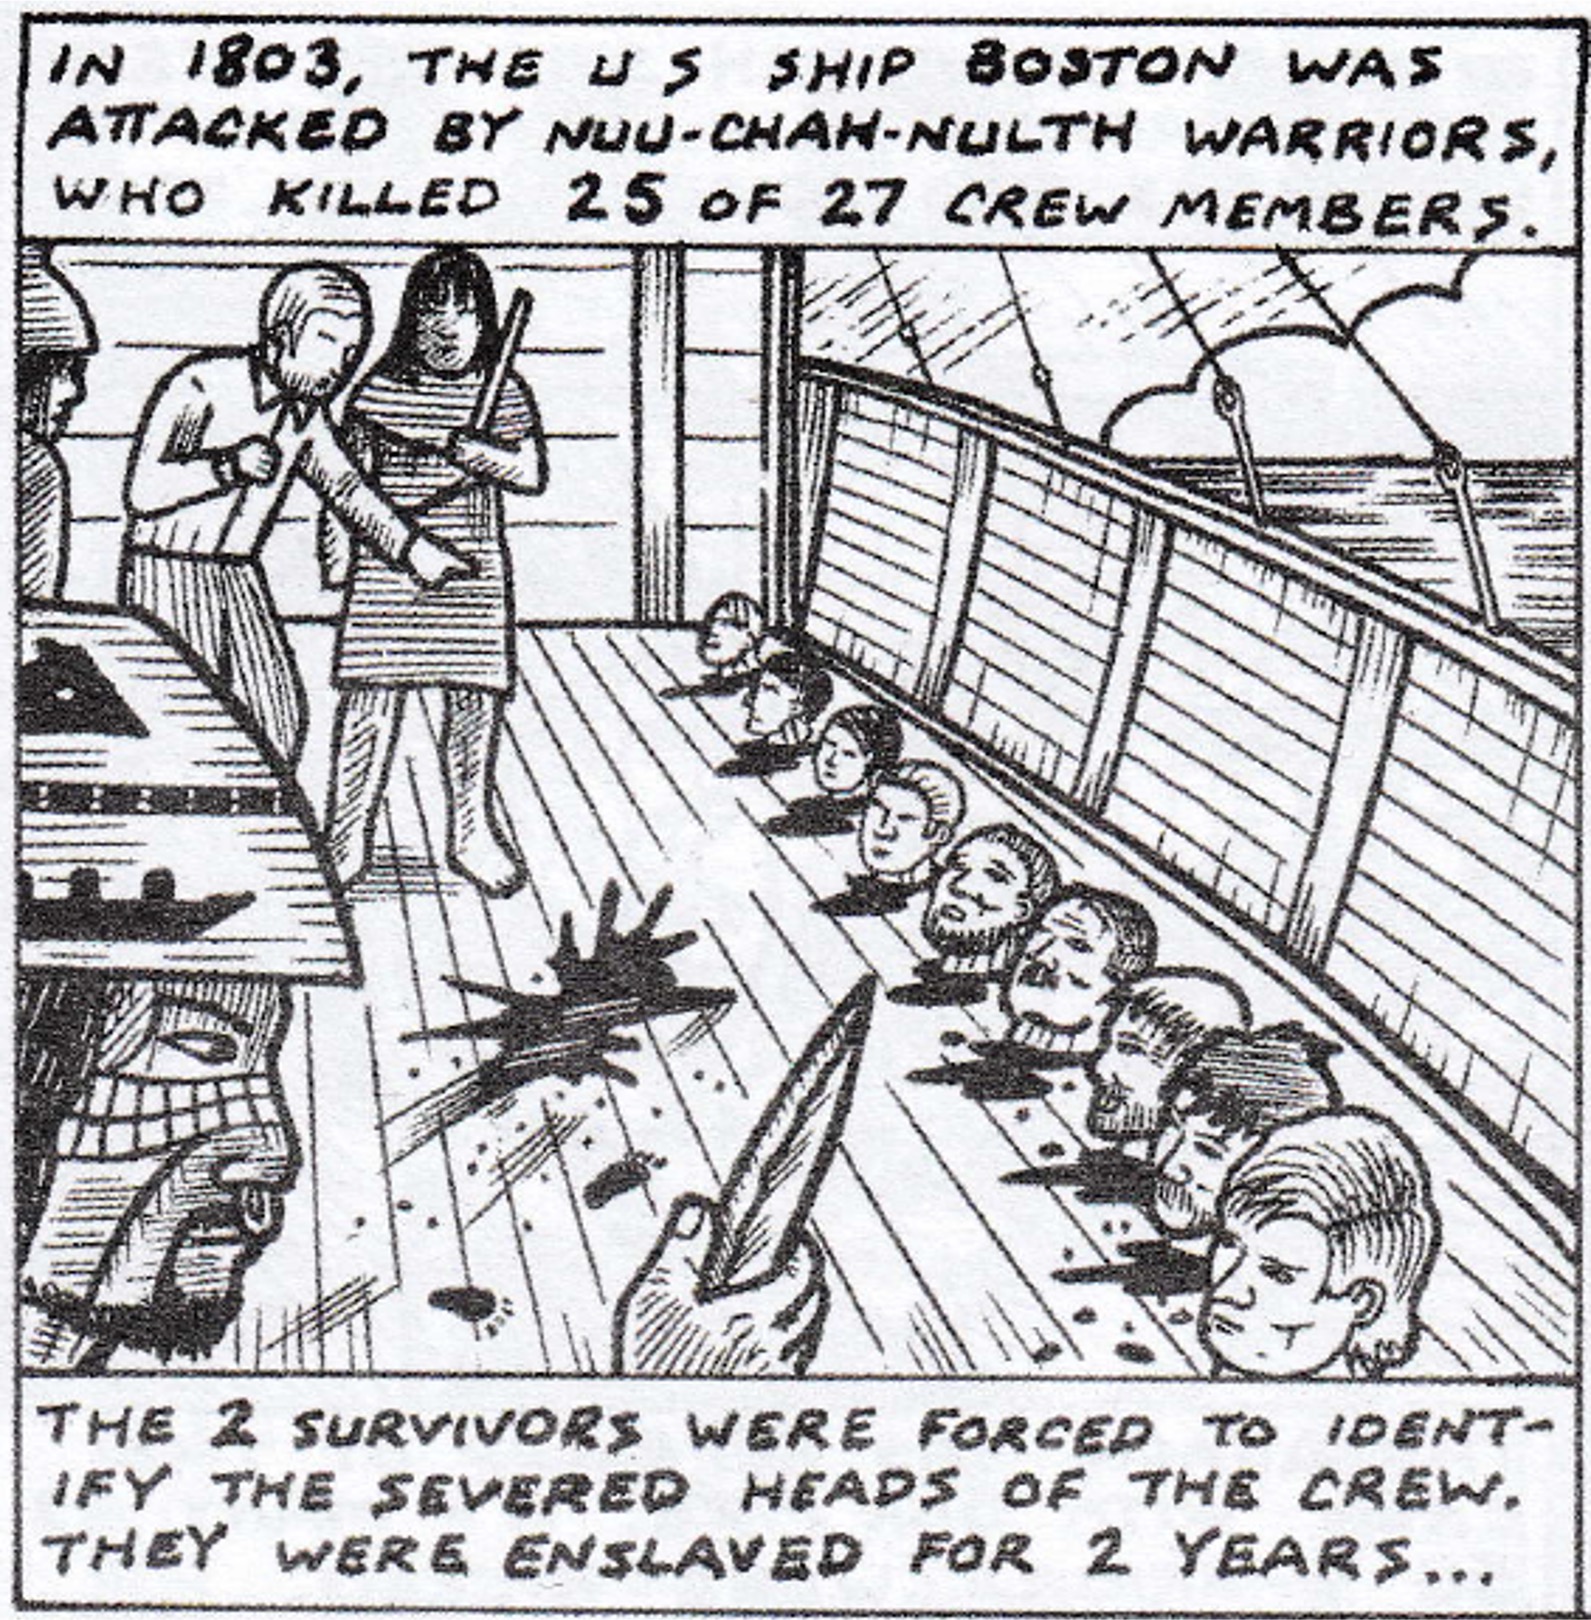 IN 1803, THE U S SHIP BOSTON WAS
ATTACKED BY NUU-CHAH-NULTH WARRIORS,
WHO KILLED 25 OF 27 CREW MEMBERS.
THE 2 SURVIVORS WERE FORCED TO IDENT-
IFY THE SEVERED HEADS OF THE CREW.
THEY WERE ENSLAVED FOR 2 YEARS...